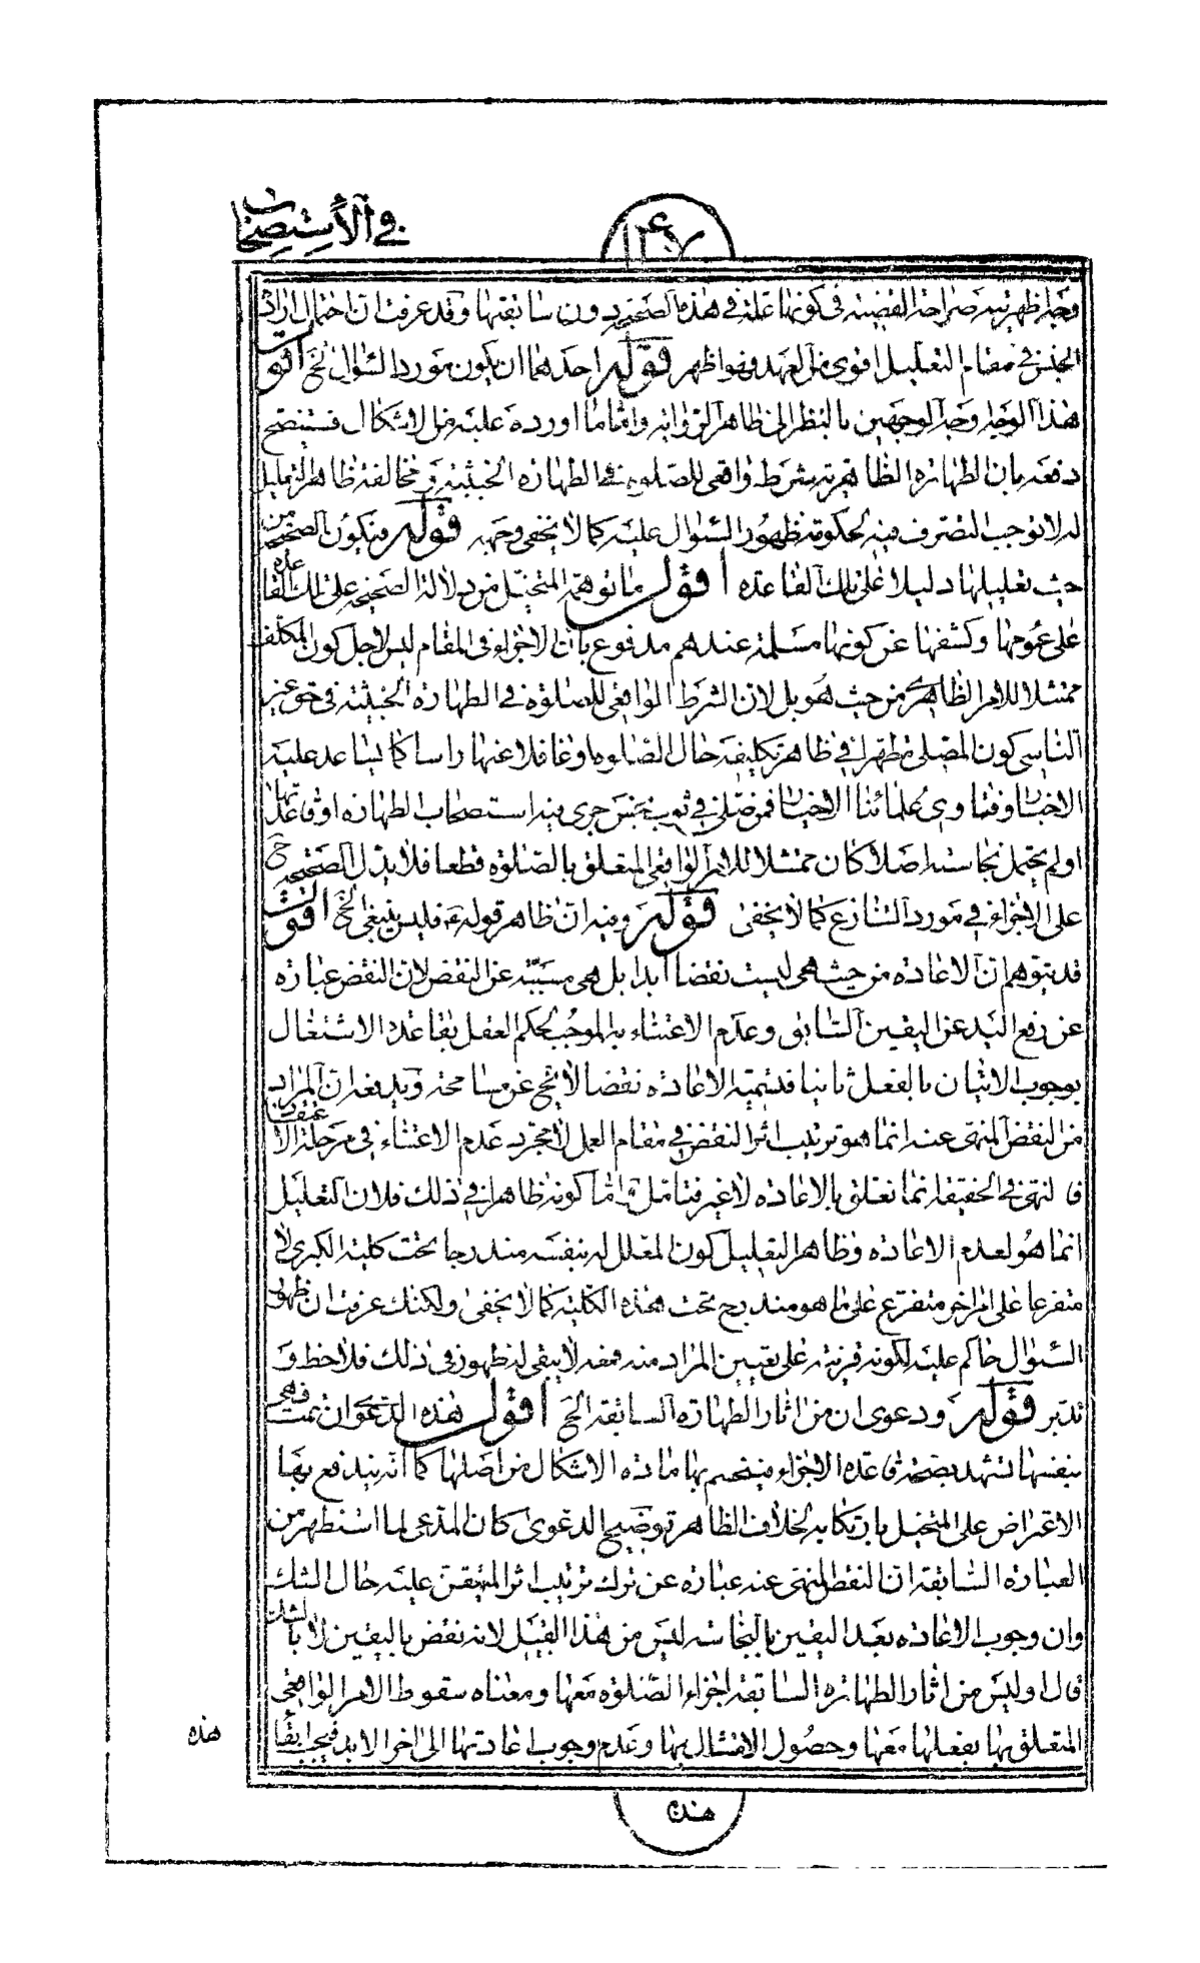 في الاستصحاب
١٤٠٧
وجه اظهريته صراحة القضية في كونها علة في هذه الصحيحة دون سابقتها وقد عرفت ان احتمال ارادة
الجنس في مقام التعليل اقوى من العهد فهو اظهر قوله احدهما ان يكون مورد السؤال الخ اقول
هذا الوجه وجه الوجهين بالنظر الى ظاهر الرواية واما ما اورده عليه من الاشكال فستتضح
دفعه بان الطهارة الظاهرية شرط واقعي للصلوة في الطهارة الخبثية ومخالفة ظاهر التعليل
له لا توجب التصرف فيه لحكومة ظهور السؤال عليه كما لا يخفى وجهه قوله فيكون الصحيحة من
حيث تعليلها دليلا على تلك القاعدة اقول ما توهمه المتخيل من دلالة الصحيحة على تلك القاعدة
على عمومها وكشفها عن كونها مسلمة عندهم مدفوع بان الاجزاء في المقام ليس لاجل كون المكلف
ممتثلا للامر الظاهري من حيث هو بل لان الشرط الواقعي للصلوة في الطهارة الخبثية في حق غير
الناسي كون المصلي متطهرا في ظاهر تكليفه حال الصلوة او غافلا عنها راسا كما يساعد عليه
الاخبار وفتاوى علمائنا الاخيار فمن صلى في ثوب نجس جرى فيه استصحاب الطهارة او قاعدتها
او لم يحتمل نجاسته اصلا كان ممتثلا للامر الواقعي المتعلق بالصلوة قطعا فلا يدل الصحيحة ح
على الاجزاء في مورد التنازع كما لا يخفى قوله وفيه ان ظاهر قوله ع فليس ينبغي الخ اقول
قد يتوهم ان الاعادة من حيث هي ليست نقضا ابدا بل هي مسببة عن النقض لان النقض عبارة
عن رفع اليد عن اليقين السابق وعدم الاعتناء به الموجب لحكم العقل بقاعدة الاشتغال
بوجوب الاتيان بالفعل ثانيا فتسمية الاعادة نقضا لا يخ عن مسامحة ويدفعه ان المراد
من النقض المنهى عنه انما هو ترتيب اثر النقض في مقام العمل لا مجرد عدم الاعتناء في مرحلة الاعتقاد
فالنهى في الحقيقة انما تعلق بالاعادة لا غير فتامل واما كونه ظاهرا في ذلك فلان التعليل
انما هو لعدم الاعادة وظاهر التعليل كون المعلل له بنفسه مندرجا تحت كلية الكبرى لا
متفرعا على امر اخر متفرع على ما هو مندرج تحت هذه الكلية كما لا يخفى ولكنك عرفت ان ظهور
السؤال حاكم عليه لكونه قرينة على تعيين المراد منه فمعه لا يبقى له ظهور في ذلك فلاحظ و
تدبر قوله ودعوى ان من اثار الطهارة السابقة الخ اقول هذه الدعوى ان تمت فهي
بنفسها تشهد بصحة قاعدة الاجزاء فينحسم بها مادة الاشكال من اصلها كما انه يندفع بها
الاعتراض على المتخيل بارتكابه لخلاف الظاهر توضيح الدعوى كان المدعى لما استظهر من
العبارة السابقة ان النقض المنهى عنه عبارة عن ترك ترتيب اثر المتيقن عليه حال الشك
وان وجوب الاعادة بعد اليقين بالنجاسة ليس من هذا القبيل لانه نقض باليقين لا بالشك
قال او ليس من اثار الطهارة السابقة اجزاء الصلوة معها ومعناه سقوط الامر الواقعي
المتعلق بها بفعلها معها وحصول الامتثال بها وعدم وجوب اعادتها الى اخر الابد فيجب ابقاء
هذه
هذه